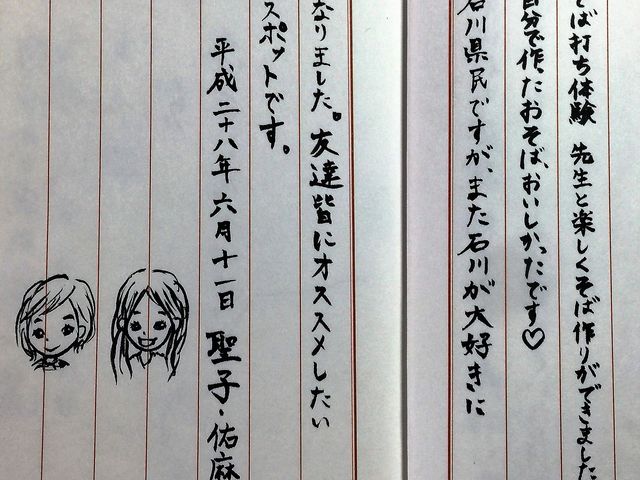 そば打ち体験 先生と楽しくそば作りができました
自分で作ったおそば、おいしかったです♡
石川県民ですが、また石川が大好きに
なりました。友達皆にオススメしたい
スポットです。
平成二十八年六月十一日 聖子・佑麻